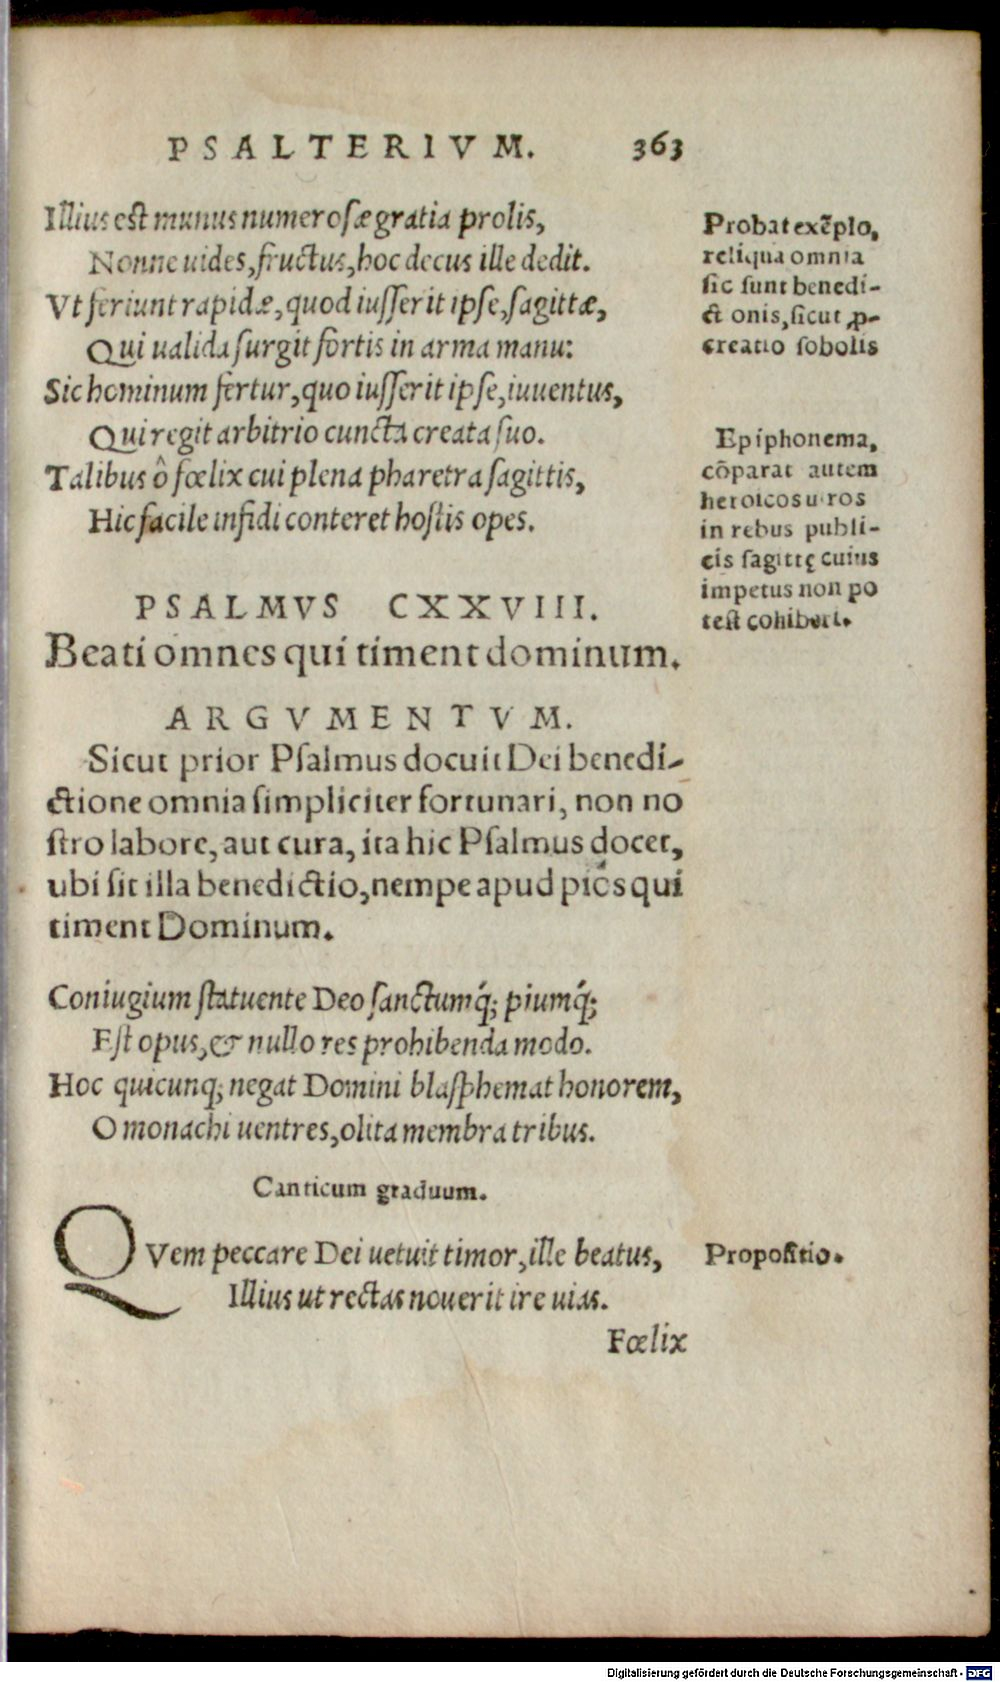 PSALTERIVM. 363
Illius est munus numerosæ gratia prolis,
Nonne uides, fructus, hoc decus ille dedit.
Vt feriunt rapidæ, quod iusserit ipse, sagittæ,
Qui ualida surgit fortis in arma manu:
Sic hominum fertur, quo iusserit ipse, iuuentus,
Qui regit arbitrio cuncta creata suo.
Talibus ô fœlix cui plena pharetra sagittis,
Hic facile infidi conteret hostis opes.
Probat exẽplo,
reliqua omnia
sic sunt benedi-
ctionis, sicut ꝓ-
creatio sobolis
Epiphonema,
cõparat autem
heroicos uiros
in rebus publi-
cis sagittę cuius
impetus non po
test cohiberi.
PSALMVS CXXVIII.
Beati omnes qui timent dominum.
ARGVMENTVM.
Sicut prior Psalmus docuit Dei benedi-
ctione omnia simpliciter fortunari, non no
stro labore, aut cura, ita hic Psalmus docet,
ubi sit illa benedictio, nempe apud pios qui
timent Dominum.
Coniugium statuente Deo sanctumq́; piumq́;
Est opus, & nullo res prohibenda modo.
Hoc quicunq; negat Domini blasphemat honorem,
O monachi uentres, olita membra tribus.
Canticum graduum.
QVem peccare Dei uetuit timor, ille beatus,
Illius ut rectas nouerit ire uias.
Propositio.
Fœlix
Digitalisierung gefördert durch die Deutsche Forschungsgemeinschaft - DFG